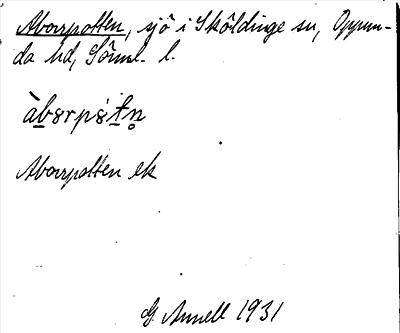 Aborrpotten, sjö i Sköldinge sn, Oppun-
da hd, Sörml. l.
àbɛrpɛ́tn̥
Aborrpotten ek
G Annell 1931